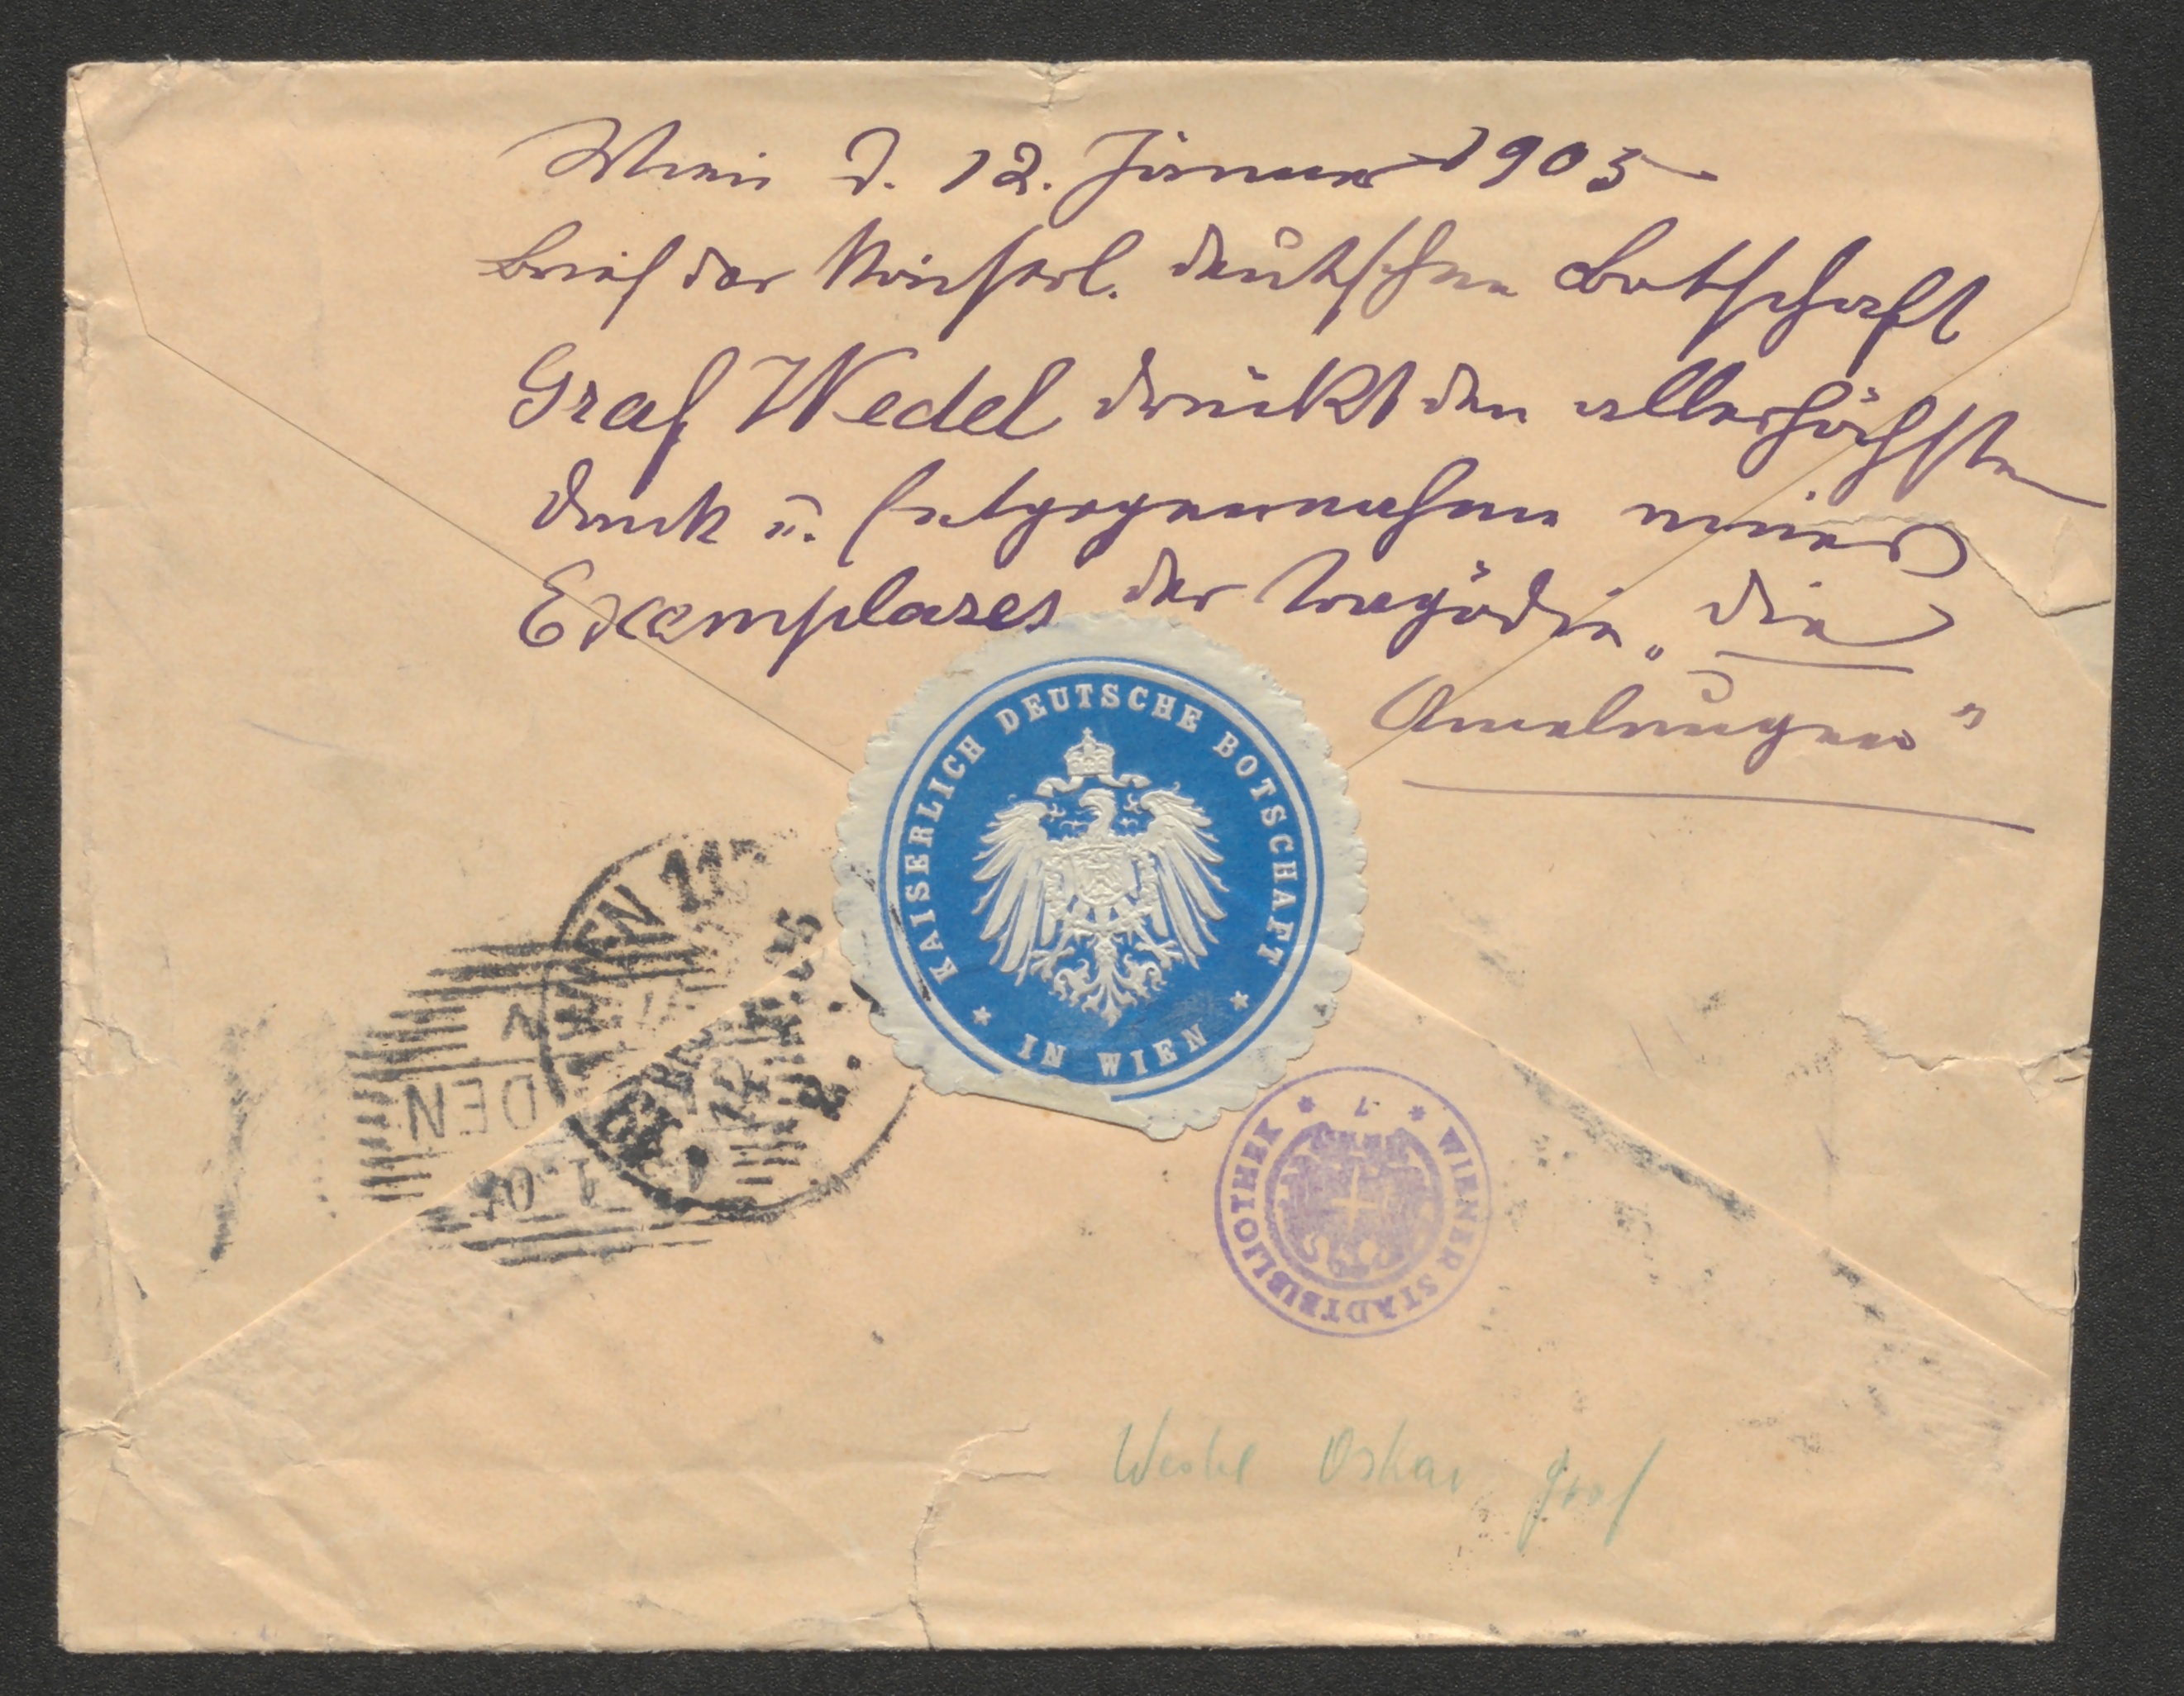 Wien d. 12. Jänner 1905
Brief der Kaiserl. deutschen Botschaft
Graf Wedel drückt den allerhöchsten
Dank u. Entgegennahme meines
Exemplares der Tragödie „die
Amelungen"
KAISERLICH DEUTSCHE BOTSCHAFT
* IN WIEN *
WIEN 11
DEN
* WIENER STADTBIBLIOTHEK * 7
Wedel Oskar Graf